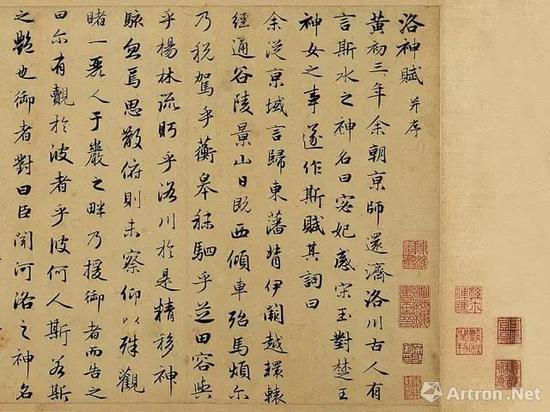 洛神賦 并序
黃初三年余朝京師還濟洛川古人有
言斯水之神名曰宓妃感宋玉對楚王
神女之事遂作斯賦其詞曰
余從京域言歸東藩背伊闕越轘轅
經通谷陵景山日既西傾車殆馬煩尔
乃稅駕乎蘅皋秣駟乎芝田容與
乎楊林流眄乎洛川於是精移神
駭忽焉思散俯則未察仰以殊觀
睹一麗人于巖之畔乃援御者而告之
曰尔有覿於彼者乎彼何人斯若斯
之艷也御者對曰臣聞河洛之神名
Artron.Net